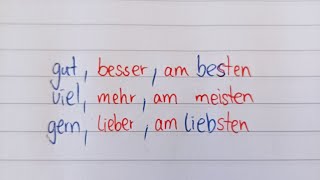 gut, besser, am besten
viel, mehr, am meisten
gern, lieber, am liebsten